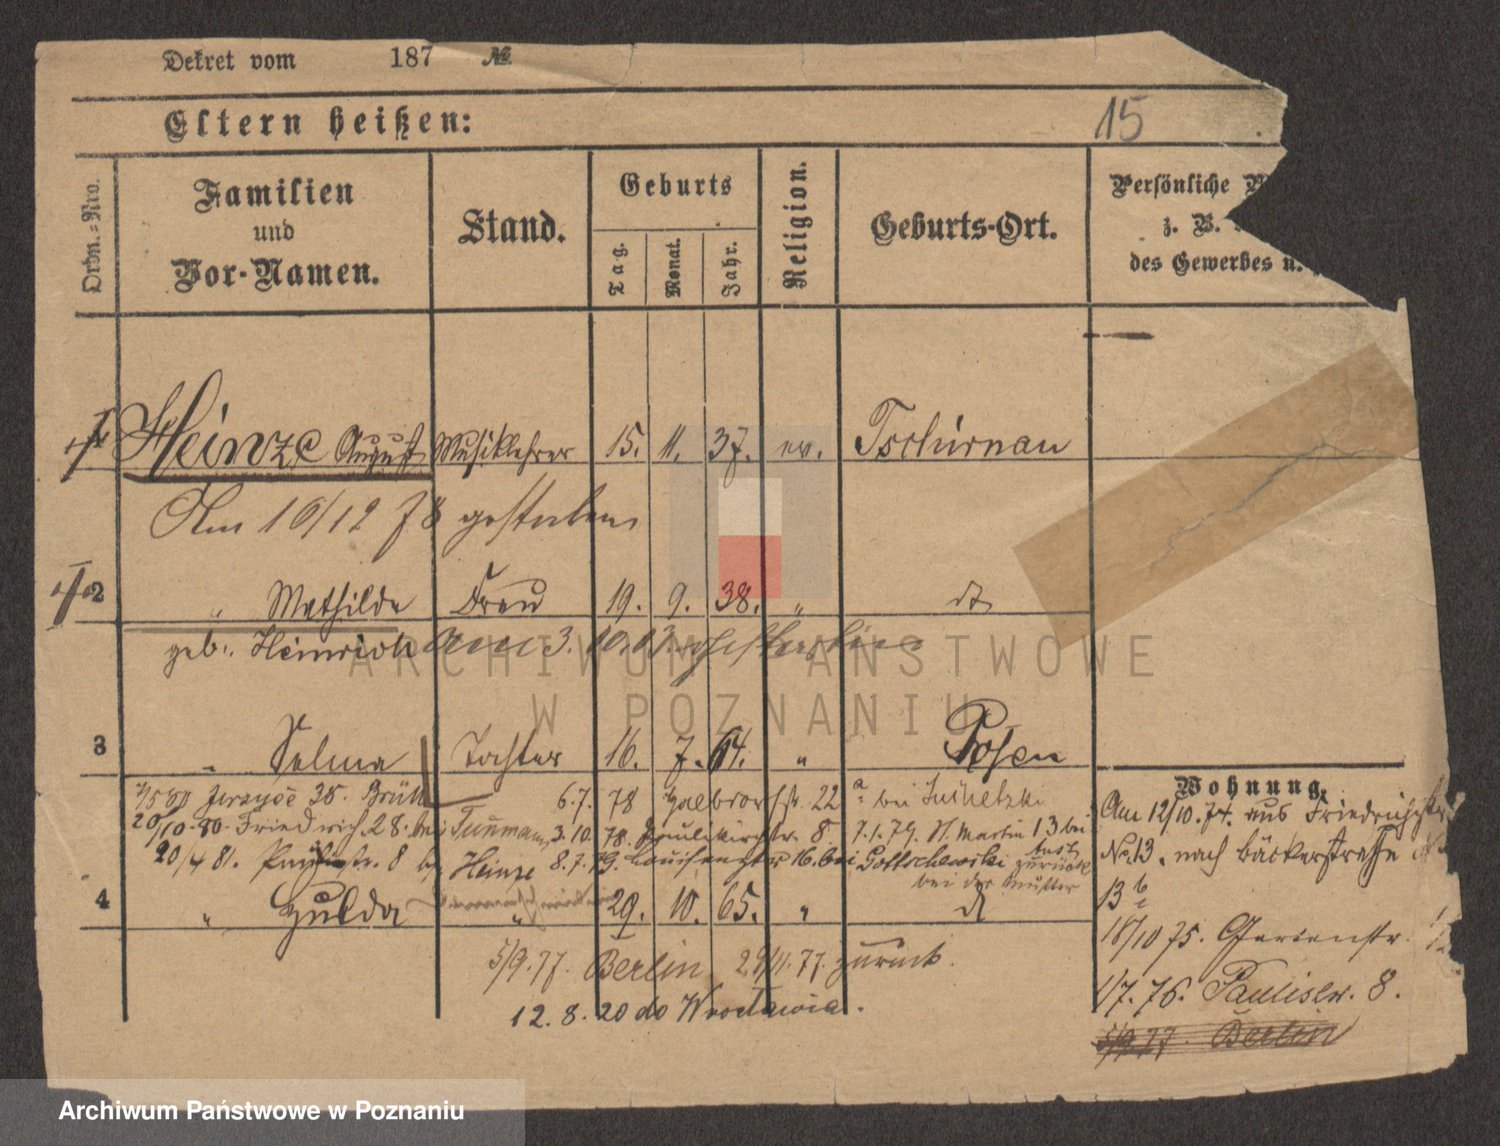 Dekret vom 187 №
Eltern heißen:
15
Ordn.-Nro.
Familien
und
Vor-Namen.
Stand.
Geburts
Tag.
Monat.
Jahr.
Religion.
Geburts-Ort.
Persönliche
z. B.
des Gewerbes u.
1 Heinze August Musiklehrer 15. 11. 37. ev. Tschirnau
Am 16/12 78 gestorben
2 " Mathilde Frau 19. 9. 38. "
geb. Heinrich am 3. 10. 13. gestorben
ARCHIWUM PAŃSTWOWE
W POZNANIU
3 " Selma Tochter 16. 7. 64. " Posen
Wohnung.
Jerzyce 38. 6.7. 78 22 bei
20/10.80. Friedrich. 28. bei 3.10. 78. Paulikirchstr. 8 7.1.79. St. Martin 13 bei
20/4 81. 8 Heinze 8.7.79. 16. bei zurück
bei der Mutter
4 " Hulda " 29. 10. 65. "
5/9.77. Berlin 77. zurück.
12. 8. 20 do Wrocławia.
Am 12/10.74. aus Friedrichstr.
No 13. nach Bäckerstraße
13 b
18/10 75. Gartenstr.
1/7. 76. Paulistr. 8.
5/9 77. Berlin
Archiwum Państwowe w Poznaniu